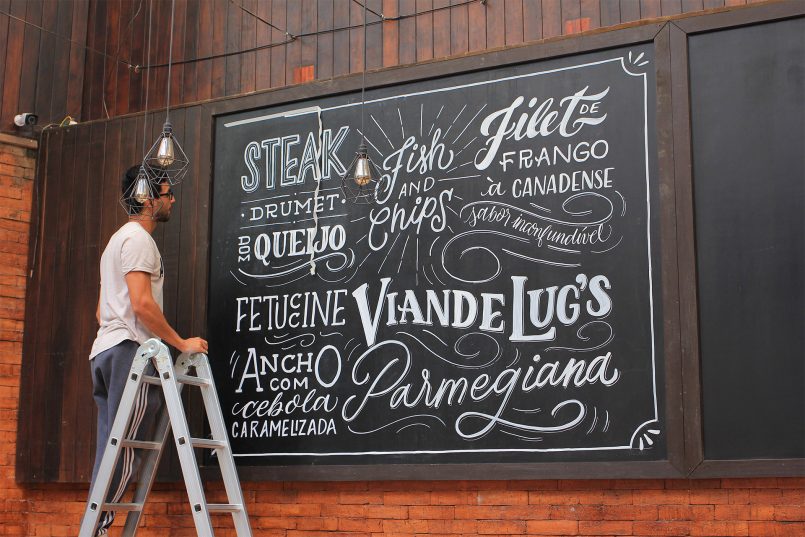 STEAK
DRUMET
COM QUEIJO
Fish
AND
Chips
Filet DE
FRANGO
à CANADENSE
sabor inconfundível
FETUCCINE
VIANDE LUG'S
ANCHO
COM
cebola
CARAMELIZADA
Parmegiana